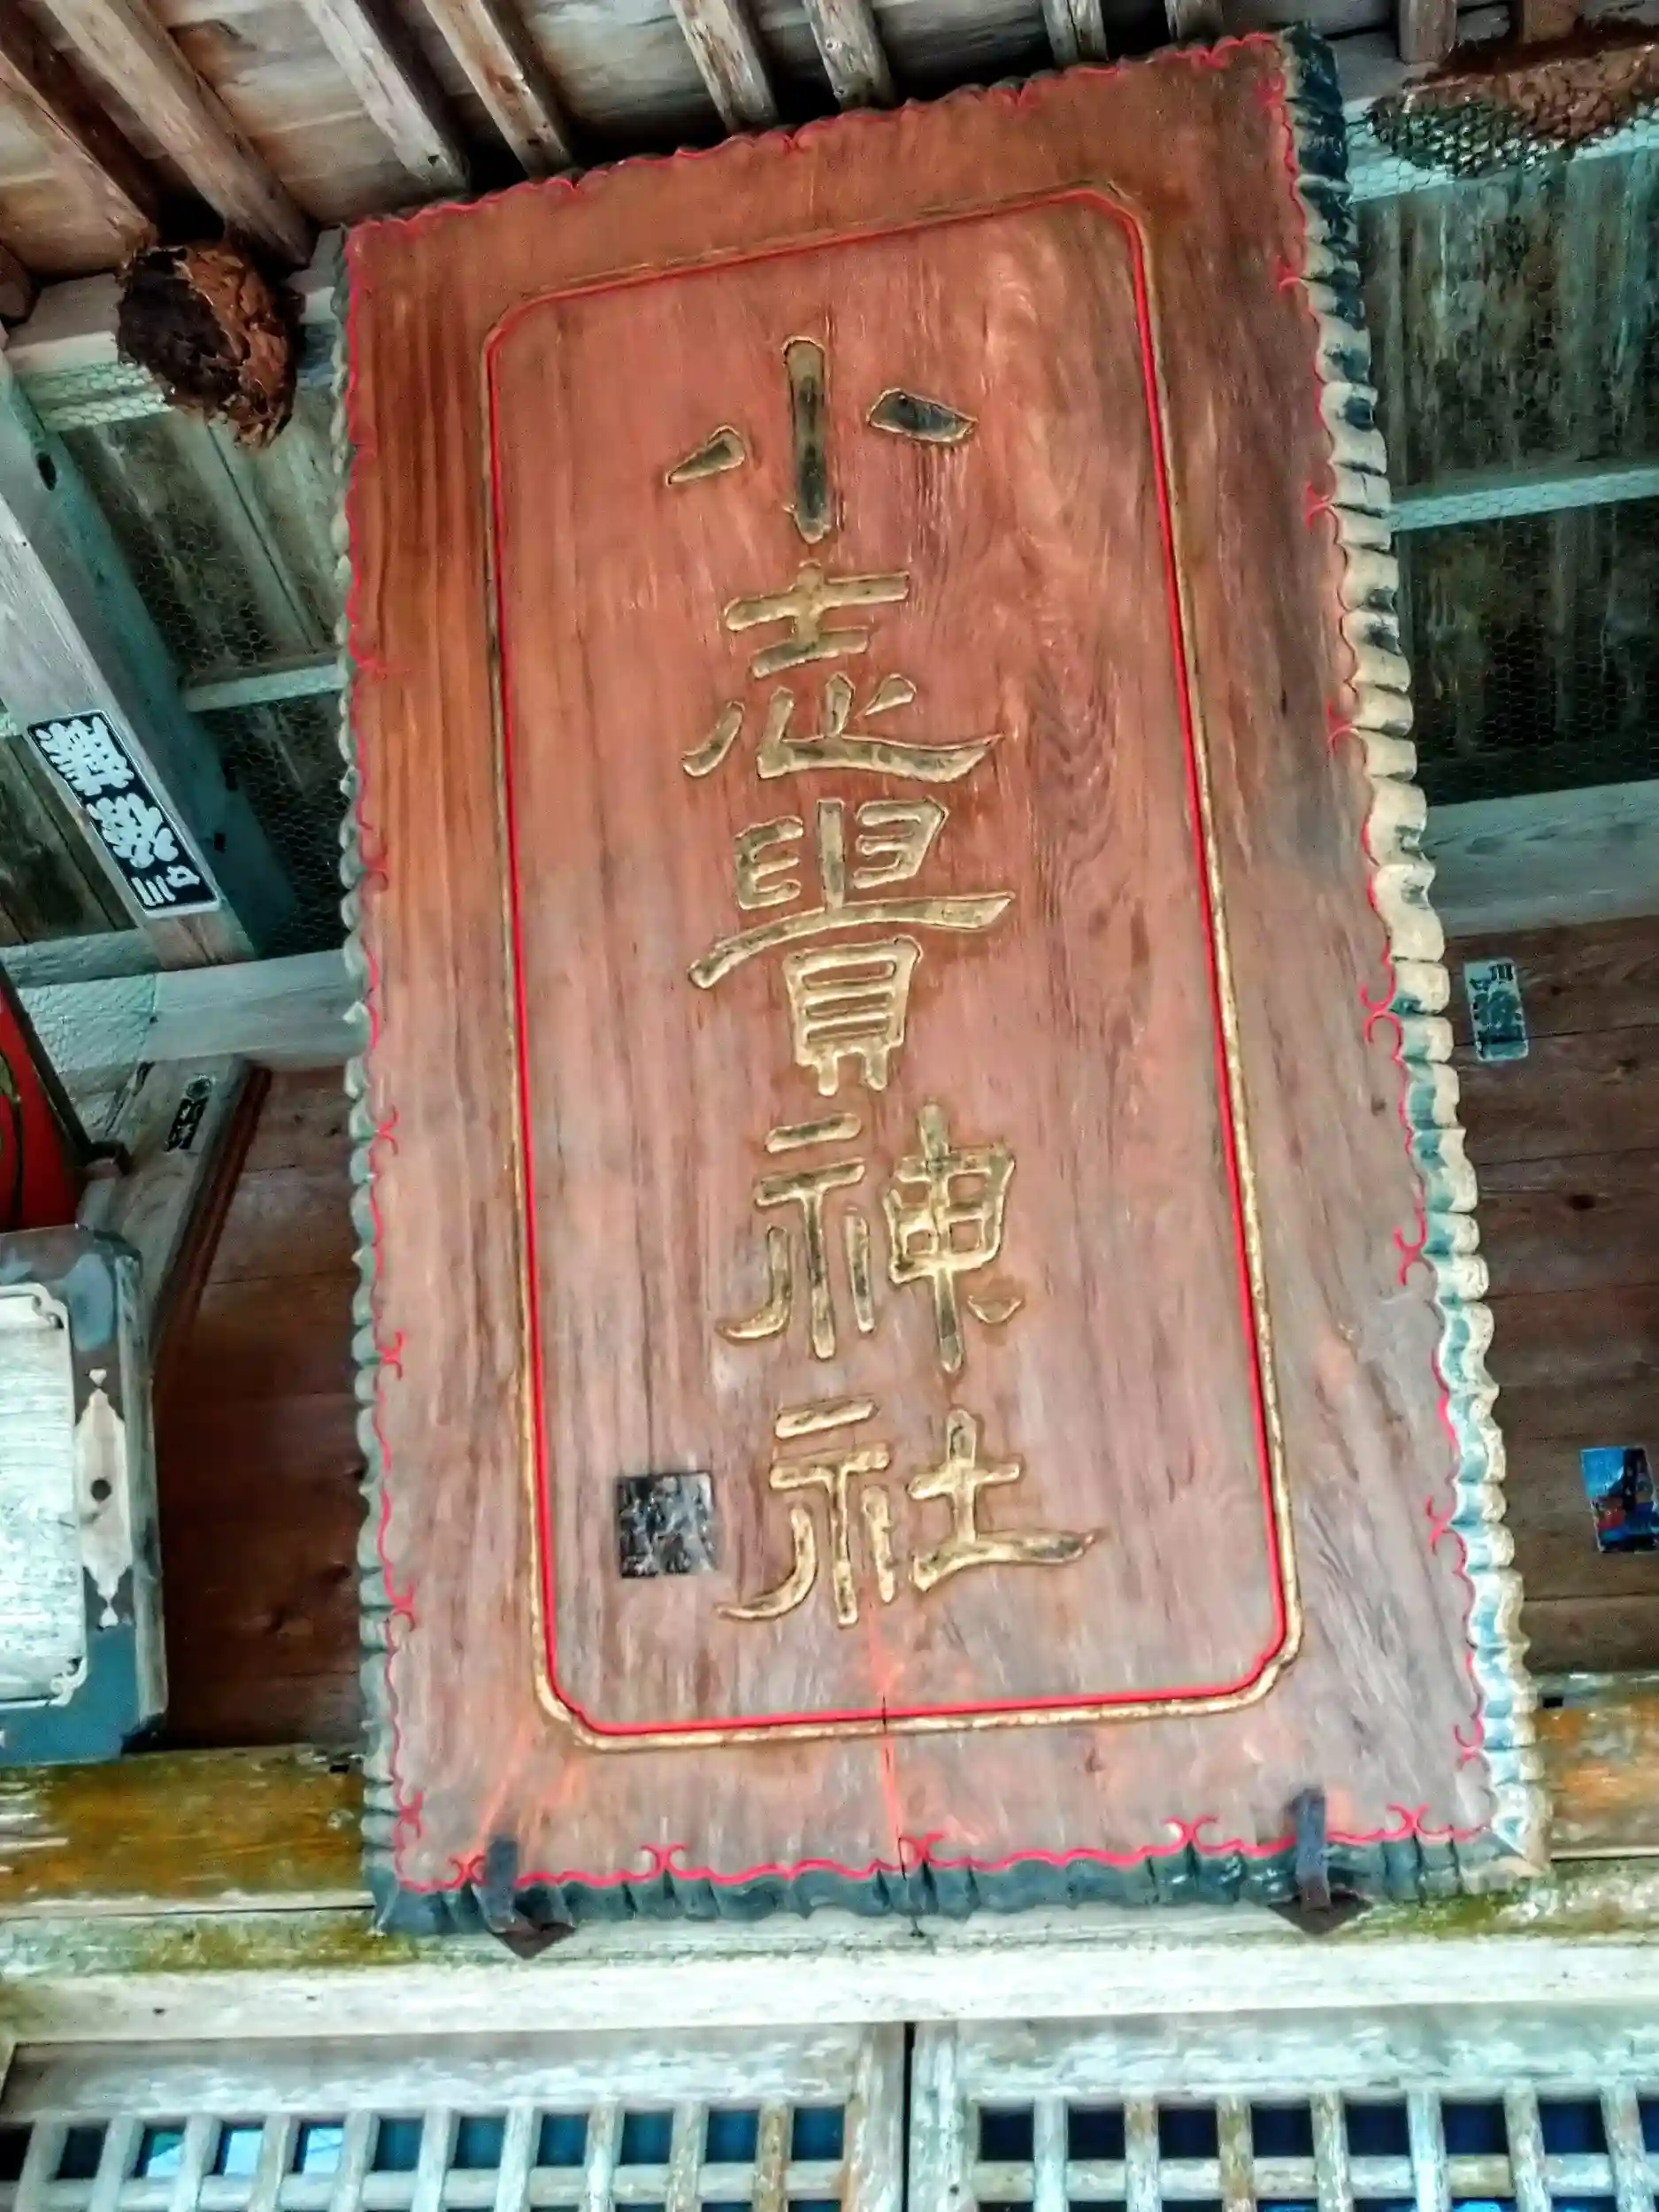 小志貴神社